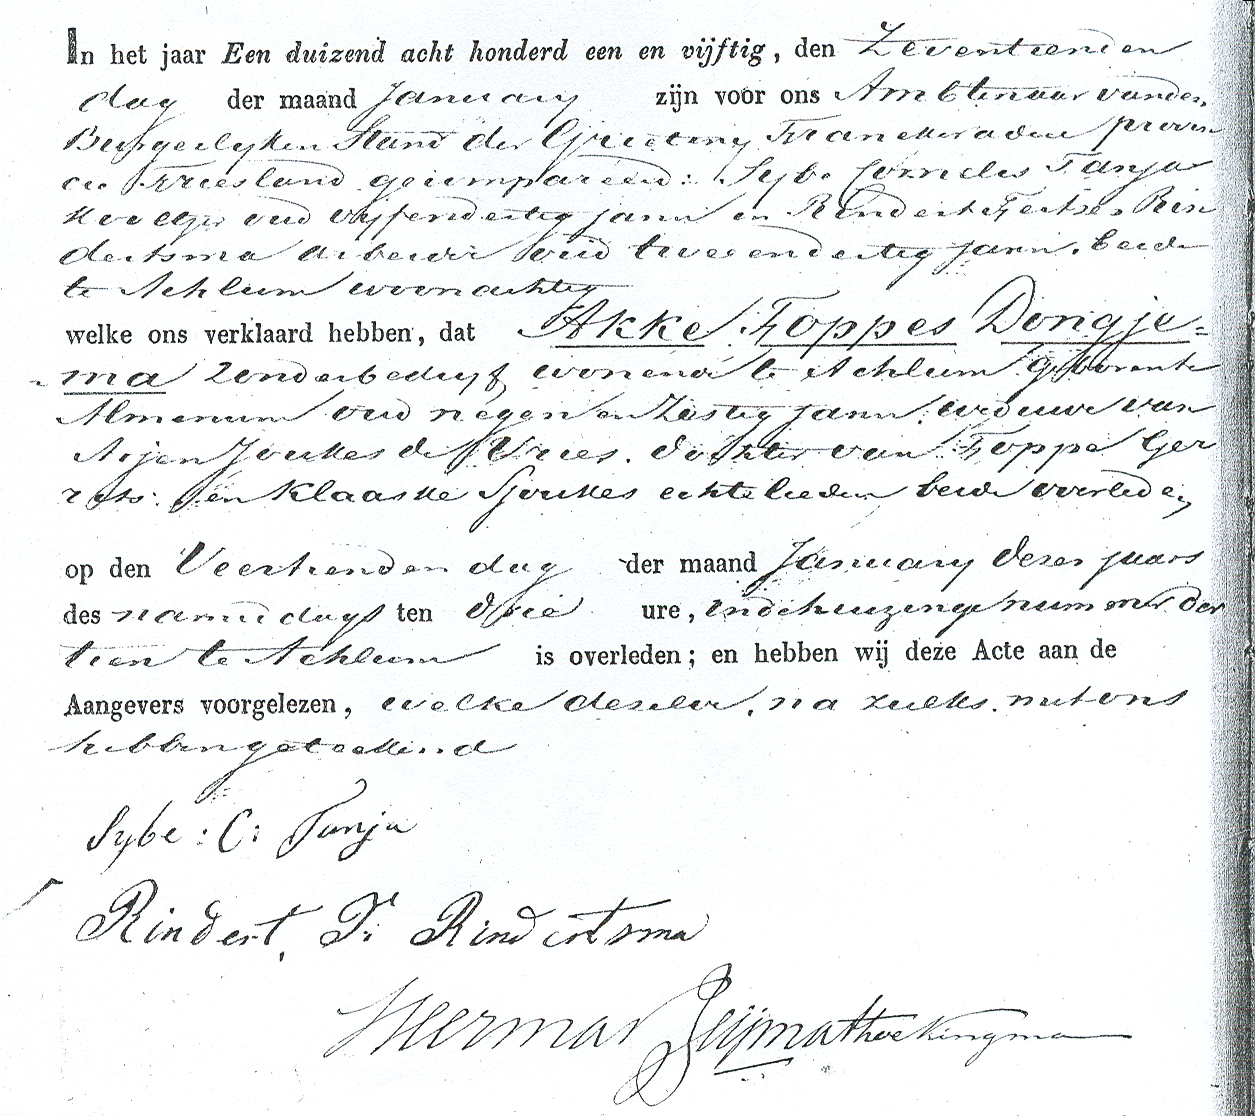 In het jaar Een duizend acht honderd een en vijftig, den Zeventienden
dag der maand January zijn voor ons Ambtenaar van den
Burgerlyken Stand der Grieteny Franekeradeel provin
cie Friesland gecompareerd: Sybe Cornelis Tanja
oud vyfendertig jaren en Rindert Feitses Rin
dertsma arbeider oud tweeendertig jaren, beide
te Achlum woonachtig
welke ons verklaard hebben, dat Akke Foppes Dongje=
ma zonder bedryf wonende te Achlum geboren te
Almenum oud negen en Zestig jaren weduwe van
Arjen Joukes de Vries. dochter van Foppe Ger
rits en Klaaske Sjoukes echtelieden beide overleden
op den Veertienden dag der maand January dezes jaars
des namiddags ten drie ure, in de huizinge nummer der
tien te Achlum is overleden; en hebben wij deze Acte aan de
Aangevers voorgelezen, welke dezelve, na zulks, met ons
hebben geteekend
Sybe : C: Tanja
Rindert, F: Rindertsma
Herman